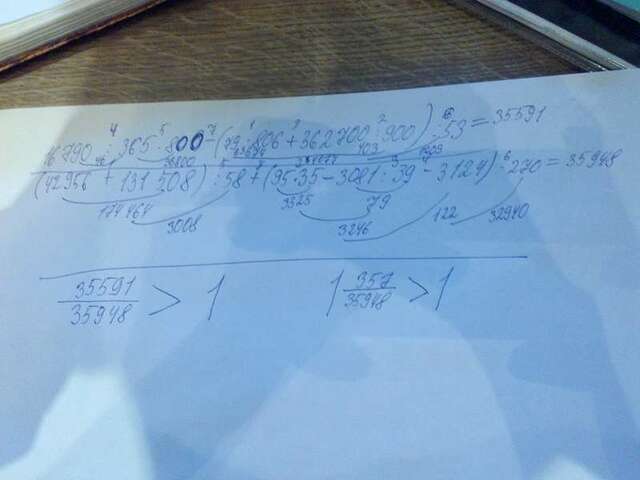 4 5 7 1 3 2 6
16790 : 365 · 800 - (79 · 806 + 362700 : 900) : 53 = 35591
46 36800 403 1209
(42956 + 131508) : 58 + (95·35 - 3081 : 39 - 3124) · 270 = 35948
174464 3008 3325 79
3246 122 32940
35591/35948 > 1 1 357/35948 > 1